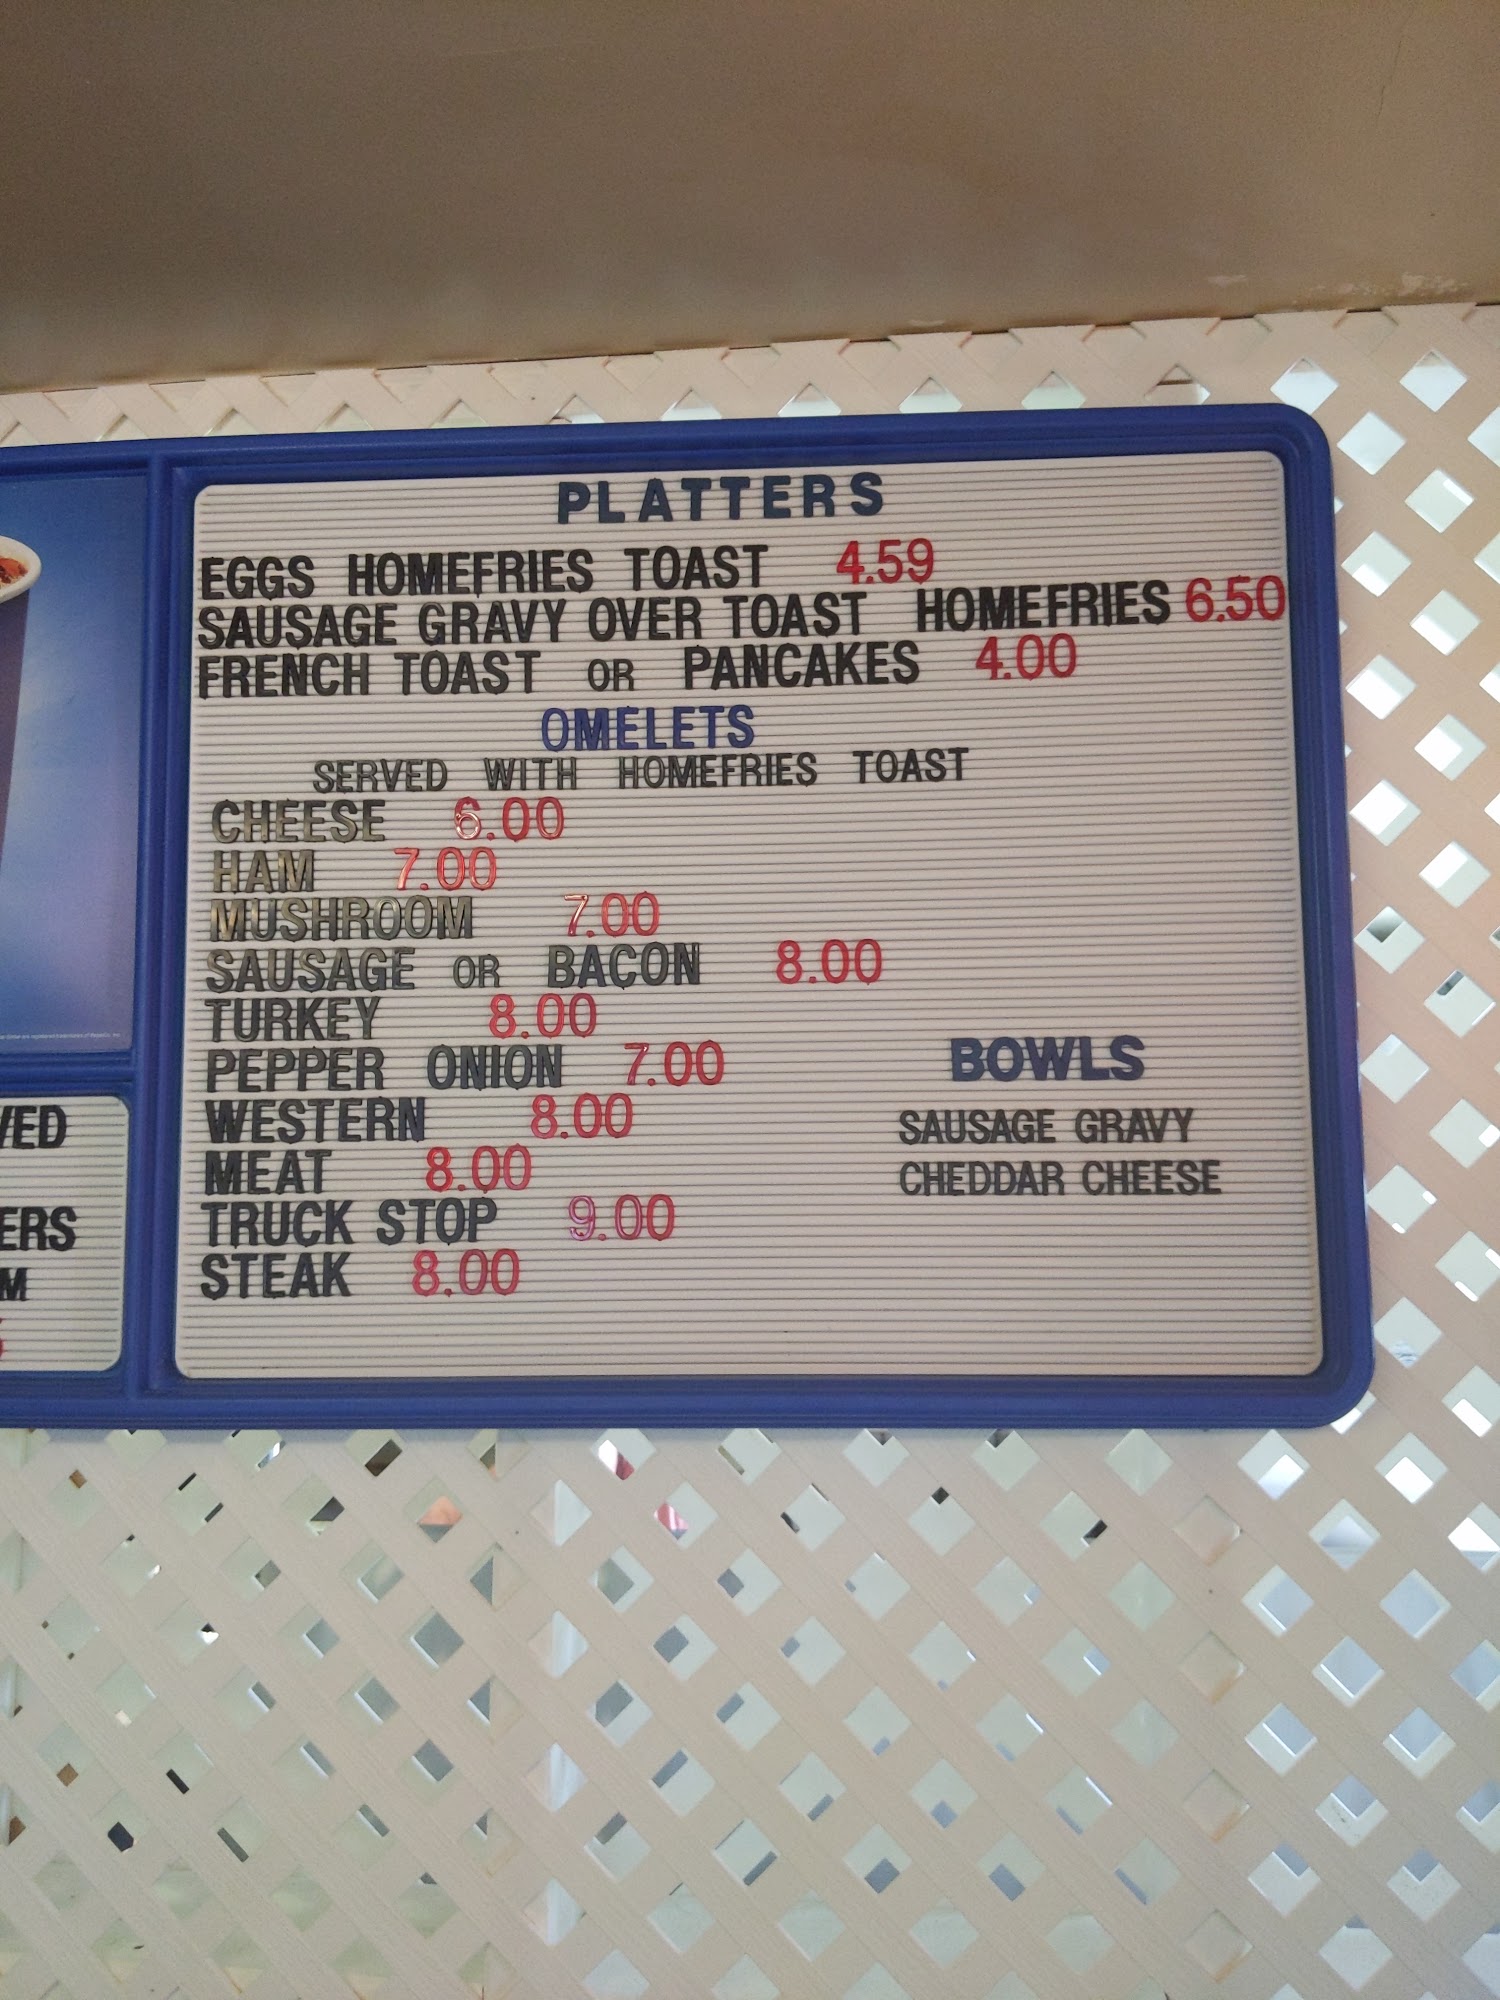 PLATTERS
EGGS HOMEFRIES TOAST 4.59
SAUSAGE GRAVY OVER TOAST HOMEFRIES 6.50
FRENCH TOAST OR PANCAKES 4.00
OMELETS
SERVED WITH HOMEFRIES TOAST
CHEESE 6.00
HAM 7.00
MUSHROOM 7.00
SAUSAGE OR BACON 8.00
TURKEY 8.00
PEPPER ONION 7.00
WESTERN 8.00
MEAT 8.00
TRUCK STOP 9.00
STEAK 8.00
BOWLS
SAUSAGE GRAVY
CHEDDAR CHEESE
VED
ERS
M